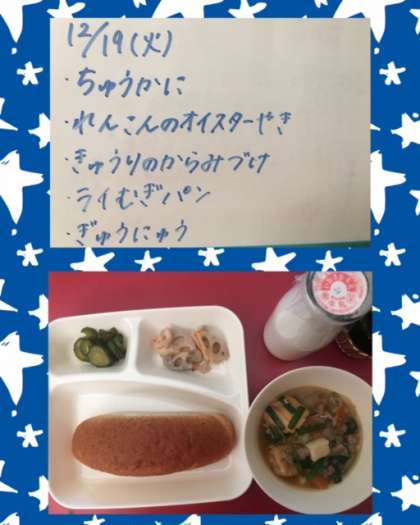 12/19(火)
・ちゅうかに
・れんこんのオイスターやき
・きゅうりのからみづけ
・ライむぎパン
・ぎゅうにゅう